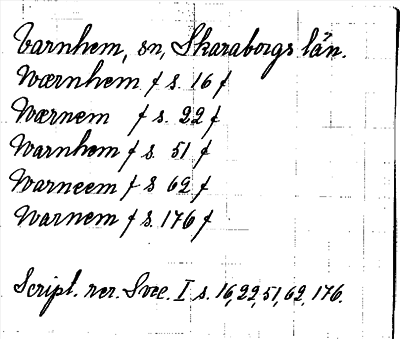 Varnhem, sn, Skaraborgs län.
Wærnhem / s. 16 /
Wærnem / s. 22 /
Warnhem / s. 51 /
Warneem / s 62 /
Warnem / s. 176 /
Script. rer. Svec. I s. 16, 22, 51, 62, 176.